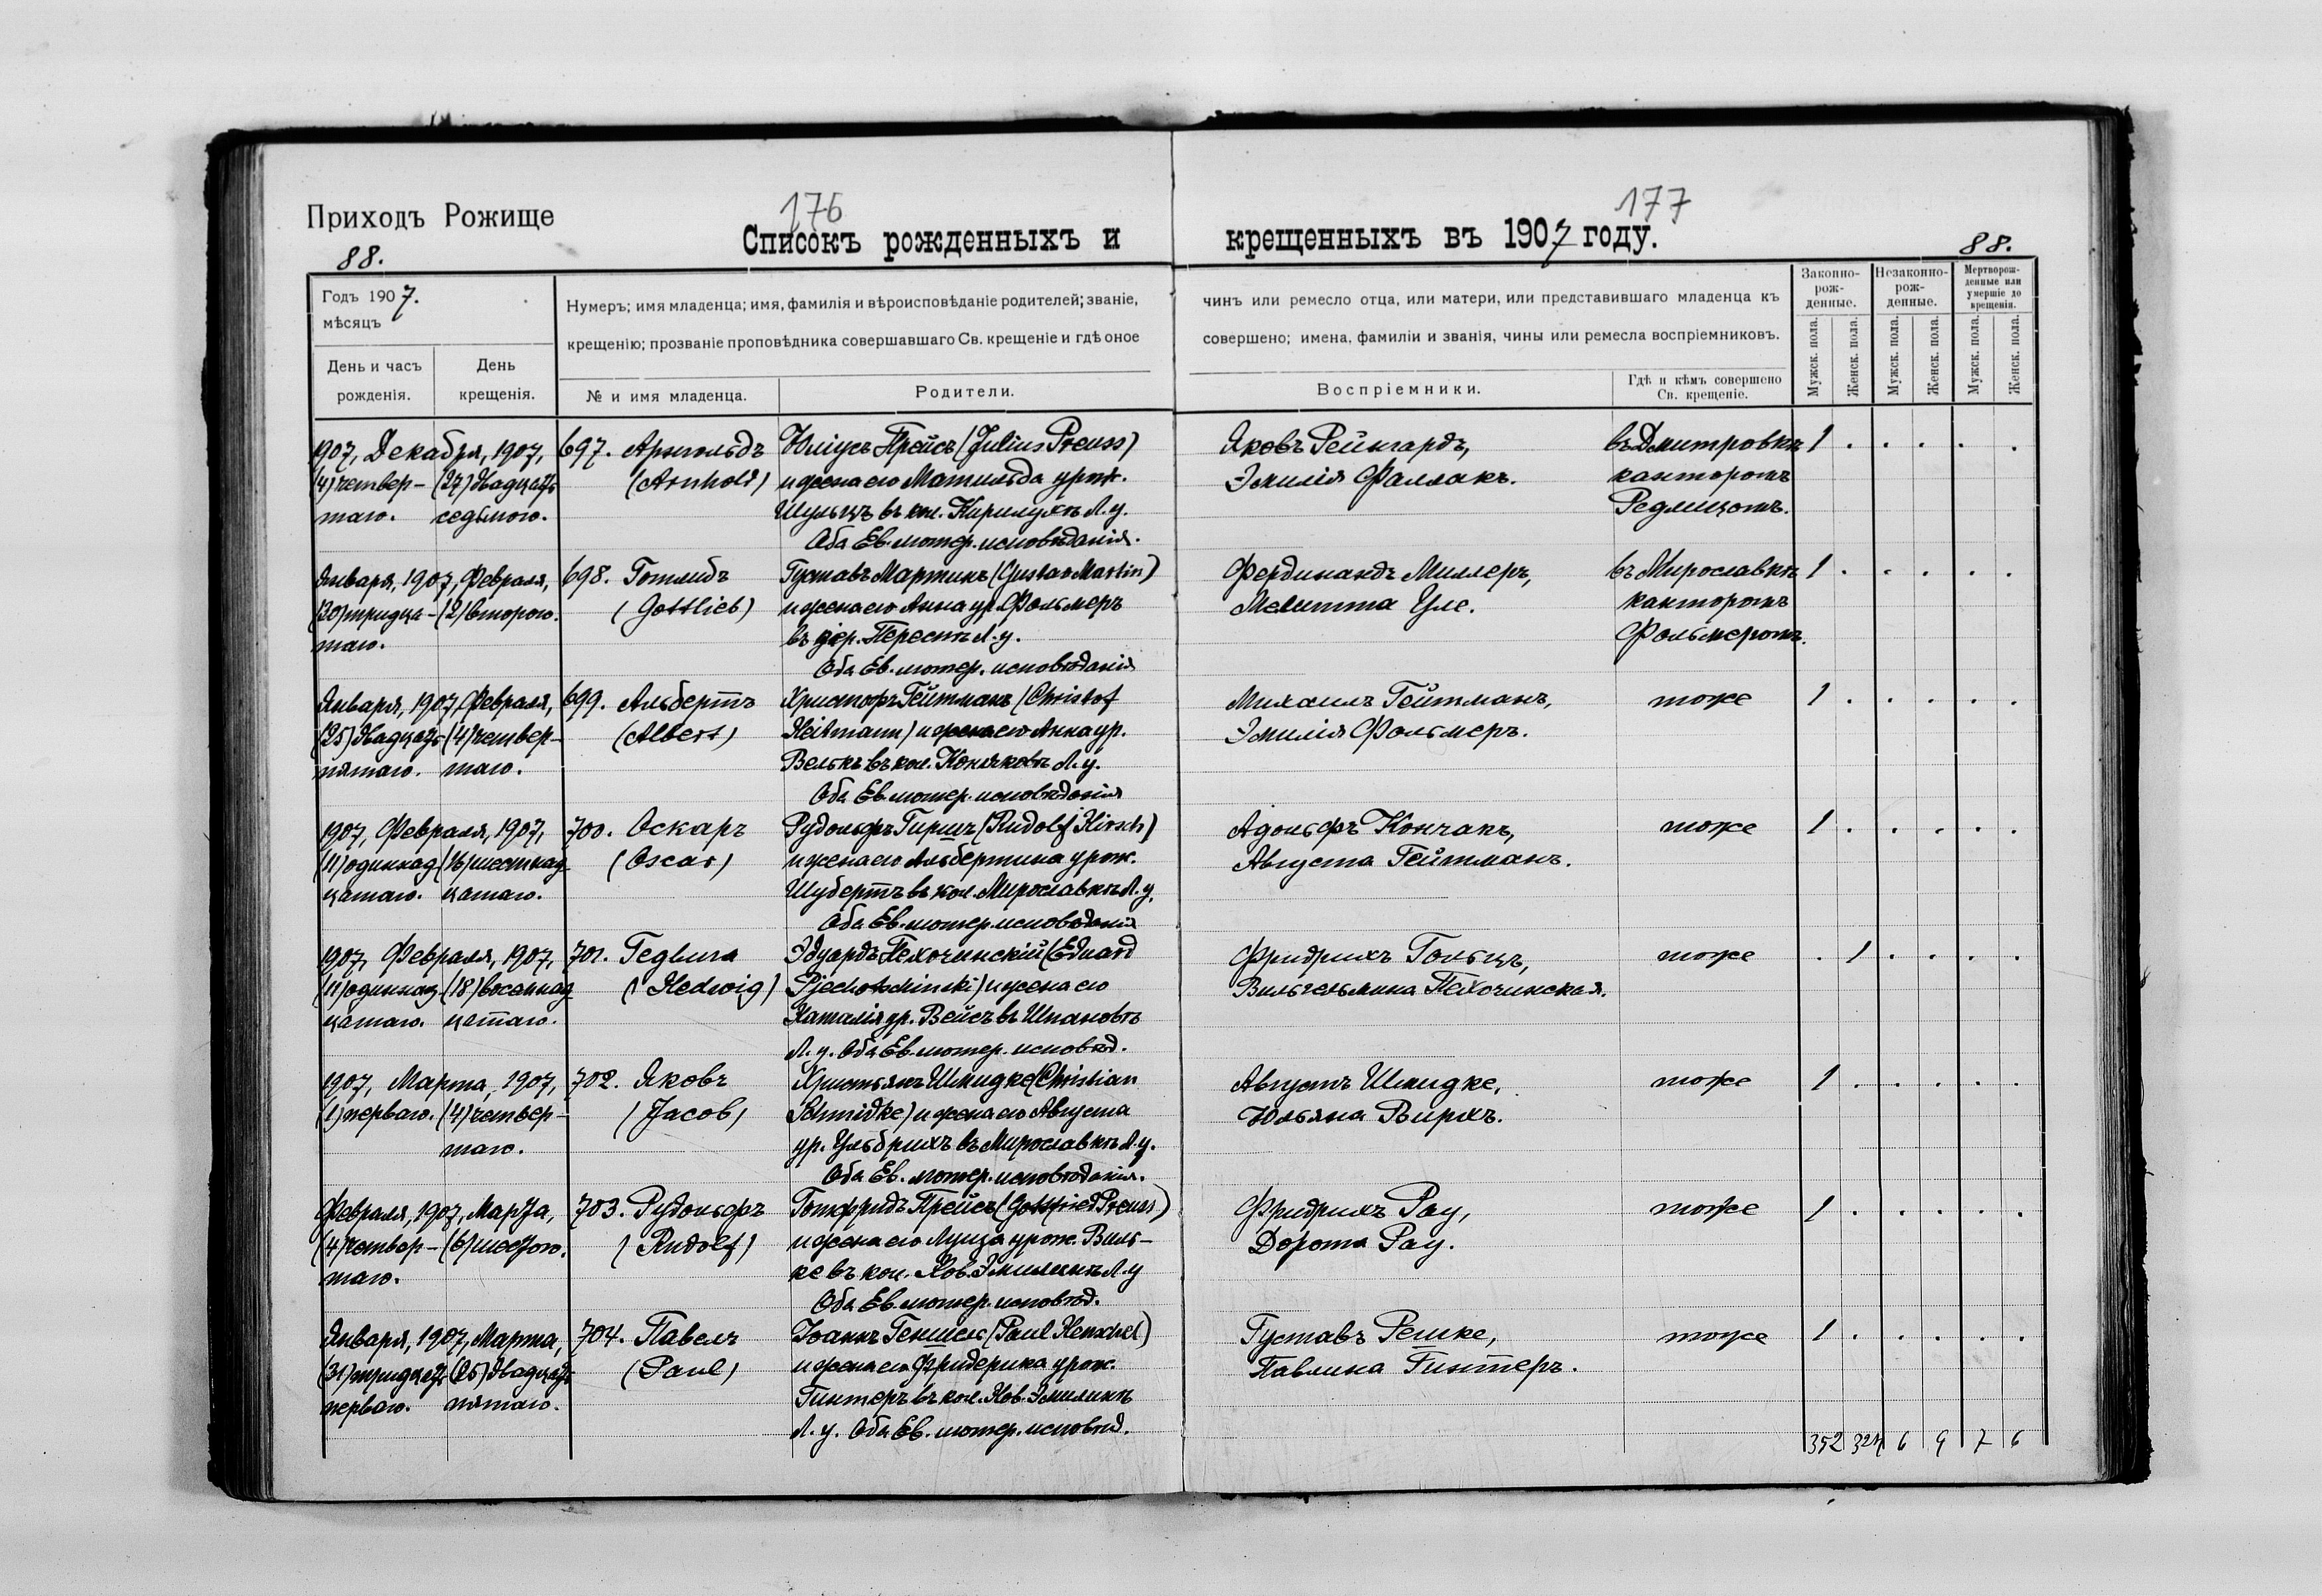 Приходъ Рожище
176
177
Списокъ рожденныхъ и
крещенныхъ въ 1907 году.
88.
88.
Годъ 1907.
мѣсяцъ
День и часъ
рожденія.
День
крещенія.
Нумеръ; имя младенца; имя, фамилія и вѣроисповѣданіе родителей; званіе,
крещенію; прозваніе проповѣдника совершавшаго Св. крещеніе и гдѣ оное
№ и имя младенца.
Родители.
чинъ или ремесло отца, или матери, или представившаго младенца къ
совершено; имена, фамиліи и званія, чины или ремесла воспріемниковъ.
Воспріемники.
Гдѣ и кѣмъ совершено
Св. крещеніе.
Законно-
рож-
денные.
Незаконно-
рож-
денные.
Мертворож-
денные или
умершіе до
крещенія.
Мужск. пола.
Женск. пола.
Мужск. пола.
Женск. пола.
Мужск. пола.
Женск. пола.
1907, Декабря, 1907, 697. Арнольдъ Юліусъ Прейсъ (Julius Preuss) Яковъ Рейнгардъ, въ Дмитровкѣ 1 . . . . .
(4) четвер- (27) двадцать (Arnhold) и жена его Матильда урож. Эмилія Фаллакъ. канторомъ
таго. седьмого. Шульцъ въ кол. Кирилукѣ Л. у. Редлицомъ.
Оба Ев. лютер. исповѣданія.
Января, 1907, Февраля, 698. Готлибъ Густавъ Мартинъ (Gustav Martin) Фердинандъ Миллеръ, въ Мирославкѣ 1 . . . . .
(30) тридца- (2) второго. (Gottlieb) и жена его Анна ур. Фольмеръ Мелитта Уле. канторомъ
таго. въ дер. Перестъ Л. у. Фольмеромъ.
Оба Ев. лютер. исповѣданія
Января, 1907, Февраля, 699. Альбертъ Христофъ Гейтманъ (Christof Михаилъ Гейтманъ, тоже 1 . . . . .
(25) двадцать (4) четвер- (Albert) Heitmann) и жена его Анна ур. Эмилія Фольмеръ.
пятаго. таго. Велькъ въ кол. Коняховѣ Л. у.
Оба Ев. лютер. исповѣданія
1907, Февраля, 1907, 700. Оскаръ Рудольфъ Гиршъ (Rudolf Hirsch) Адольфъ Кончакъ, тоже 1 . . . . .
(11) одиннад (16) шестнад (Oscar) и жена его Альбертина урож. Августа Гейтманъ.
цатаго. цатаго. Шубертъ въ кол. Мирославкѣ Л. у.
Оба Ев. лютер. исповѣданія
1907, Февраля, 1907, 701. Гедвига Эдуардъ Пехочинскій (Eduard Фридрихъ Гольцъ, тоже . 1 . . . .
(11) одиннад (18) восемнад (Hedwig) Pjechotschinski) и жена его Вильгельмина Пехочинская.
цатаго. цатаго. Наталія ур. Вейсъ въ Шпановѣ
Л. у. Оба Ев. лютер. исповѣд.
1907, Марта, 1907, 702. Яковъ Христьянъ Шмидке (Christian Августъ Шмидке, тоже 1 . . . . .
(1) перваго. (4) четвер- (Jacob) Schmidke) и жена его Августа Юльяна Вирхъ.
таго. ур. Ульбрихъ въ Мирославкѣ Л. у.
Оба Ев. лютер. исповѣданія.
Февраля, 1907, Марта, 703. Рудольфъ Готфридъ Прейсъ (Gottfried Preuss) Фридрихъ Рау, тоже 1 . . . . .
(4) четвер- (6) шестого. (Rudolf) и жена его Луиза урож. Виль- Дорота Рау.
таго. ке въ кол. Нов. Эмилинѣ Л. у
Оба Ев. лютер. исповѣд.
Января, 1907, Марта, 704. Павелъ Іоаннъ Геншель (Paul Henschel) Густавъ Решке, тоже 1 . . . . .
(31) тридцать (25) двадцать (Paul) и жена его Фридерика урож. Павлина Гинтеръ.
перваго. пятаго. Гинтеръ въ кол. Нов. Эмилинѣ
Л. у. Оба Ев. лютер. исповѣд.
352 324 6 9 7 6